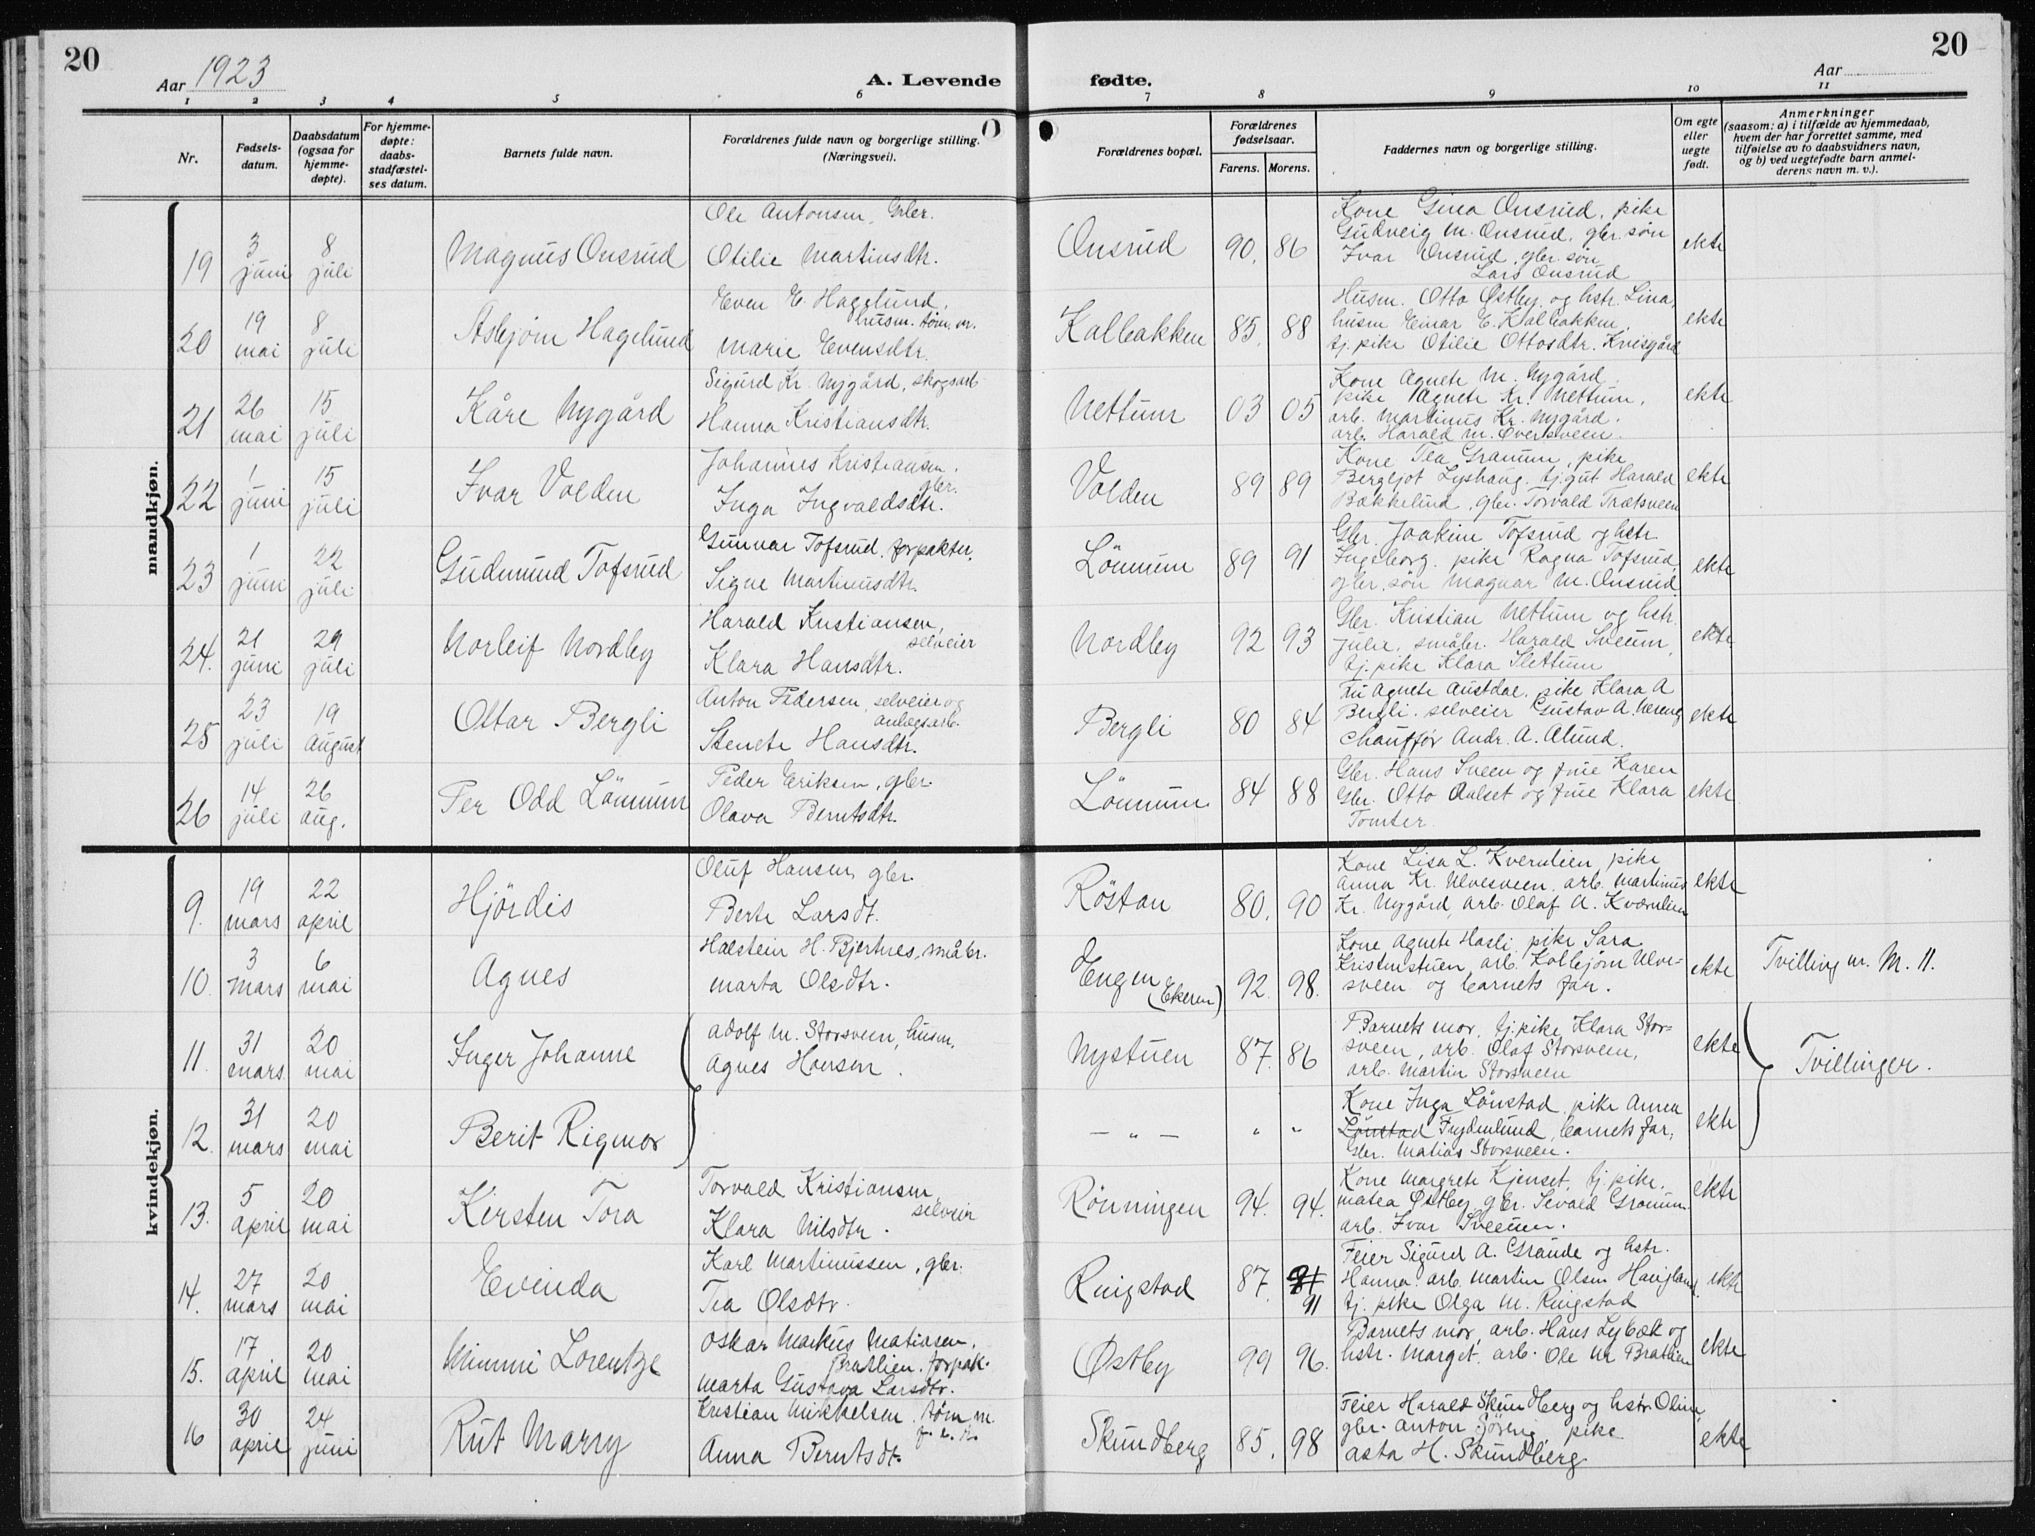 20
Aar 1923
A. Levende
fødte.
Aar
20
1 2 3 4 5 6 7 8 9 10 11
Nr.
Fødsels-
datum.
Daabsdatum
(ogsaa for
hjemme-
døpte).
For hjemme-
døpte:
daabs-
stadfæstel-
ses datum.
Barnets fulde navn.
Forældrenes fulde navn og borgerlige stilling.
(Næringsvei).
Forældrenes bopæl.
Forældrenes
fødselsaar.
Farens. Morens.
Faddernes navn og borgerlige stilling.
Om egte
eller
uegte
født.
Anmerkninger
(saasom: a) i tilfælde av hjemmedaab,
hvem der har forrettet samme, med
tilføielse av to daabsvidners navn,
og b) ved uegtefødte barn anmel-
derens navn m. v.).
mandkjøn.
19
3 juni
8 juli
Magnus Onsrud
Ole Antonsen, Gbr.
Otilie Martinsdtr.
Onsrud
90. 86
Kone Gina Onsrud, pike
Gudveig M. Onsrud, gbr. søn
Ivar Onsrud, gbr. søn
Lars Onsrud
ekte
20
19 mai
8 juli
Asbjørn Hagelund
Even E. Hagelund,
husm. tøm. m.
Marie Evensdtr.
Kalbakken
85. 88
Husm. Otto Østby og hstr. Lina,
husm Einar E. Kalbakken,
tj. pike Otilie Ottosdtr. Kvisgård
ekte
21
26 mai
15 juli
Kåre Nygård
Sigurd Kr. Nygård, skogsarb
Hanna Kristiansdtr.
Nettum
03 05
Kone Agnete M. Nygård
pike Agnete Kr. Nettum,
arb. Martinus Kr. Nygård.
arb. Harald M. Øversveen.
ekte
22
1 juni
15 juli
Ivar Volden
Johannes Kristiansen,
gbr.
Inga Ingvaldsdtr.
Volden
89 89
Kone Tea Granum, pike
Bergljot Lyshaug, tj. gut Harald
Bakkelund, gbr. Torvald Trætsveen
ekte
23
1 juni
22 juli
Gudmund Tofsrud
Gunnar Tofsrud, forpakter,
Signe Martinusdtr.
Lönnum
89 91
Gbr. Joakim Tofsrud og hstr
Ingeborg. pike Ragna Tofsrud,
gbr. søn Magnar M. Onsrud
ekte
24.
21 juni
29 juli
Norleif Nordby
Harald Kristiansen,
selveier
Klara Hansdtr.
Nordby
92 93
Gbr. Kristian Nettum og hstr.
Julie, småbr. Harald Sveum,
tj. pike Klara Slettum
ekte
25
23 juli
19 August
Ottar Bergli
Anton Pedersen, selveier og
anlegsarb.
Stenete Hansdtr.
Bergli
80 84
Fru Agnete Austdal, pike Klara A
Bergli. selveier Gustav A.
Chauffør Andr. A. Alund.
ekte
26
14 juli
26 aug.
Per Odd Lönnum
Peder Eriksen, gbr.
Olava Berntsdtr.
Lönnum
84 88
Gbr. Hans Sveen og frue Karen
Gbr. Otto Aalset og frue Klara
Tomter
ekte
kvindekjøn.
9.
19 mars
22 april
Hjördis
Oluf Hansen, gbr.
Berte Larsdt.
Röstan
80. 90
Kone Lisa L. Kvernlien, pike
Anna Kr. Ulvesveen, arb. Martinus
Kr. Nygård, arb. Olaf A. Kværnlien
ekte
10.
3 mars
6 mai
Agnes
Halstein H. Bjertnes, småbr.
Marta Olsdtr.
Engen
(Ekern)
92. 98.
Kone Agnete Hasli, pike Sara
Kristenstuen, arb. Kolbjørn Ulve-
sveen og barnets far.
ekte
Tvilling m. M. 11.
11.
31 mars
20 mai
Inger Johanne
Adolf M. Storsveen, husm.
Agnes Hansen.
Nystuen
87. 86
Barnets mor, tj. pike Klara Stor-
sveen, arb. Olaf Storsveen,
arb. Martin Storsveen
ekte
Tvillinger.
12.
31 mars
20 mai
Berit Rigmor
— " —
" "
Kone Inga Lönstad, pike Anna
Lönstad Frydenlund, barnets far,
Gbr. Matias Storsveen.
ekte
13.
5 april
20 mai
Kirsten Tora
Torvald Kristiansen
selveier
Klara Nilsdtr.
Rönningen
94. 94.
Kone Margrete Kjenset, tj. pike
Matea Østby, gbr. Sevald Granum.
arb. Ivar Sveum.
ekte
14.
27 mars
20 mai
Evinda
Karl Martinussen, gbr.
Tea Olsdtr.
Ringstad
87. 91
Feier Sigurd A. Grande og hstr.
Hanna, arb. Martin Olsen Haugland,
tj. pike Olga M. Ringstad
ekte
15.
17 april
20 mai
Mimmi Lorentze
Oskar Markus Matiasen,
Bratlien, forpak.
Marta Gustava Larsdtr.
Østby
99 96.
Barnets mor, arb. Hans Lybæk og
hstr. Marget, arb. Ole M Bratlien
ekte
16
30 april
24 juni
Rut Marry
Kristian Mikkelsen, tøm. m.
Anna Berntsdt.
Skundberg
85. 98
Feier Harald Skundberg og hstr Oline,
gbr. Anton, pike
Asta H. Skundberg
ekte